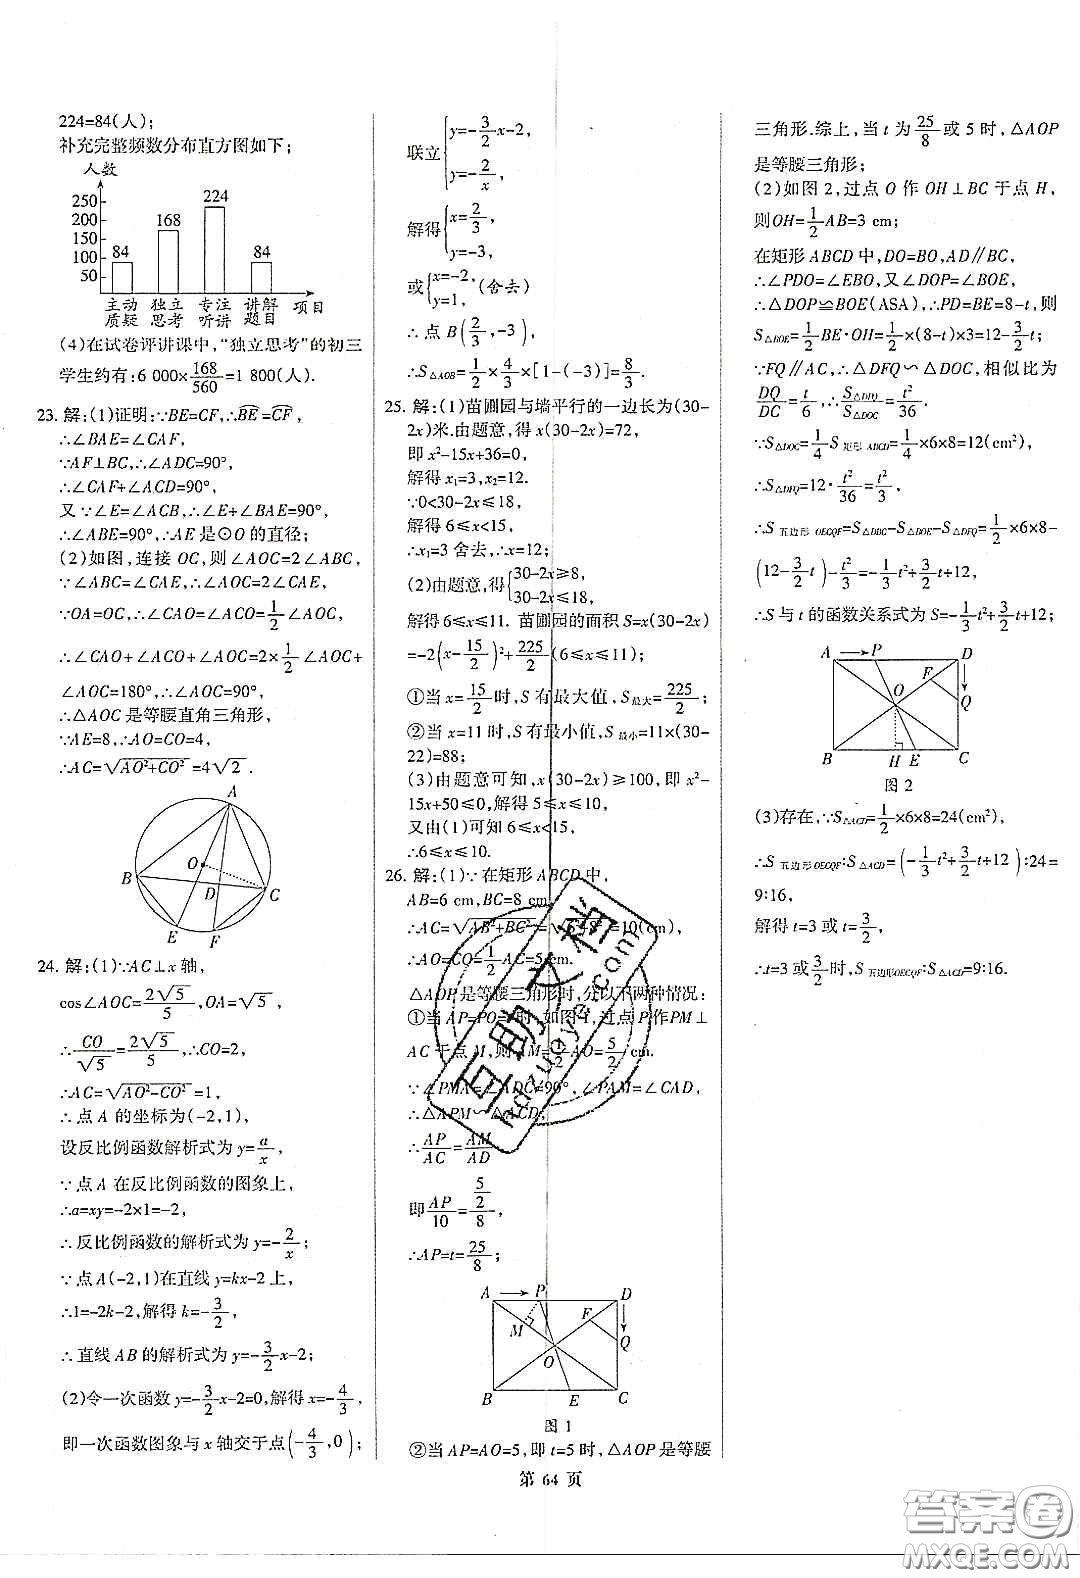 224=84(人);
补充完整频数分布直方图如下;
人数
250
200
150
100
50
84
168
224
84
主动 独立 专注 讲解 项目
质疑 思考 听讲 题目
(4)在试卷评讲课中,“独立思考”的初三
学生约有:6 000×168/560=1 800(人).
23. 解:(1)证明:∵BE=CF,∴B͡E=C͡F,
∴∠BAE=∠CAF,
∵AF⊥BC,∴∠ADC=90°,
∴∠CAF+∠ACD=90°,
又∵∠E=∠ACB,∴∠E+∠BAE=90°,
∴∠ABE=90°,∴AE是⊙O的直径;
(2)如图,连接OC,则∠AOC=2∠ABC,
∵∠ABC=∠CAE,∴∠AOC=2∠CAE,
∵OA=OC,∴∠CAO=∠ACO=1/2∠AOC,
∴∠CAO+∠CAO+∠AOC=2×1/2∠AOC+
∠AOC=180°,∴∠AOC=90°,
∴△AOC是等腰直角三角形,
∵AE=8,∴AO=CO=4,
∴AC=√(AO²+CO²)=4√2.
A
O
B
D
C
E
F
24. 解:(1)∵AC⊥x轴,
cos∠AOC=2√5/5,OA=√5,
∴CO/√5=2√5/5,∴CO=2,
∴AC=√(AO²-CO²)=1,
∴点A的坐标为(-2,1),
设反比例函数解析式为y=a/x,
∵点A在反比例函数的图象上,
∴a=xy=-2×1=-2,
∴反比例函数的解析式为y=-2/x;
∵点A(-2,1)在直线y=kx-2上,
∴1=-2k-2,解得k=-3/2,
∴直线AB的解析式为y=-3/2x-2;
(2)令一次函数y=-3/2x-2=0,解得x=-4/3,
即一次函数图象与x轴交于点(-4/3,0);
联立{y=-3/2x-2,
y=-2/x,
解得{x=2/3,
y=-3,
或{x=-2,
y=1,(舍去)
∴点B(2/3,-3),
∴S△AOB=1/2×4/3×[1-(-3)]=8/3.
25. 解:(1)苗圃园与墙平行的一边长为(30-
2x)米.由题意,得x(30-2x)=72,
即x²-15x+36=0,
解得x₁=3,x₂=12.
∵0<30-2x≤18,
解得6≤x<15,
∴x₁=3舍去,∴x=12;
(2)由题意,得{30-2x≥8,
30-2x≤18,
解得6≤x≤11. 苗圃园的面积S=x(30-2x)
=-2(x-15/2)²+225/2(6≤x≤11);
①当x=15/2时,S有最大值,S最大=225/2;
②当x=11时,S有最小值,S最小=11×(30-
22)=88;
(3)由题意可知,x(30-2x)≥100,即x²-
15x+50≤0,解得5≤x≤10,
又由(1)可知6≤x<15,
∴6≤x≤10.
26. 解:(1)∵在矩形ABCD中,
AB=6 cm,BC=8 cm,
∴AC=√(AB²+BC²)=√(6²+8²)=10(cm),
∴AO=CO=1/2AC=5cm.
△AOP是等腰三角形时,分以下两种情况:
①当AP=PO=t时,如图1,过点P作PM⊥
AC于点M,则AM=1/2AO=5/2cm.
∵∠PMA=∠ADC=90°,∠PAM=∠CAD,
∴△APM∽△ACD;
∴AP/AC=AM/AD
即AP/10=(5/2)/8,
∴AP=t=25/8;
A
P
D
F
M
Q
O
B
E
C
图1
②当AP=AO=5,即t=5时,△AOP是等腰
三角形.综上,当t为25/8或5时,△AOP
是等腰三角形;
(2)如图2,过点O作OH⊥BC于点H,
则OH=1/2AB=3 cm;
在矩形ABCD中,DO=BO,AD∥BC,
∴∠PDO=∠EBO,又∠DOP=∠BOE,
∴△DOP≌BOE(ASA),∴PD=BE=8-t,则
S△BOE=1/2BE·OH=1/2×(8-t)×3=12-3/2t;
∵FQ∥AC,∴△DFQ∽△DOC,相似比为
DQ/DC=t/6,∴S△DFQ/S△DOC=t²/36.
∵S△DOC=1/4S矩形ABCD=1/4×6×8=12(cm²),
∴S△DFQ=12·t²/36=t²/3,
∴S五边形OECQF=S△DBC-S△BOE-S△DFQ=1/2×6×8-
(12-3/2t)-t²/3=-1/3t²+3/2t+12,
∴S与t的函数关系式为S=-1/3t²+3/2t+12;
A
P
D
F
O
Q
B
H
E
C
图2
(3)存在,∵S△ACD=1/2×6×8=24(cm²),
∴S五边形OECQF:S△ACD=(-1/3t²+3/2t+12):24=
9:16,
解得t=3或t=3/2,
∴t=3或3/2时,S五边形OECQF:S△ACD=9:16.
第 64 页
互助文档
hdzuoye.com
答案卷
MXQE.COM